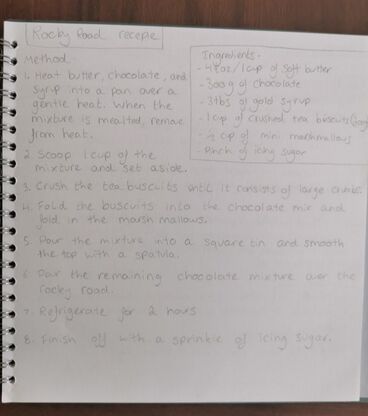 Rocky Road recepie
Method.
1. Heat butter, chocolate, and
syrup into a pan over a
gentle heat. When the
mixture is mealted, remove
from heat.
Ingredients.
- 4½oz/1 cup of soft butter
- 300g of chocolate
- 3tbs of gold syrup
- 1 cup of crushed tea biscuits
- ½ cup of mini marshmallows
- Pinch of icing sugar
2. Scoop 1 cup of the
mixture and set aside.
3. Crush the tea buscuits until it consists of large chunks.
4. Fold the buscuits into the chocolate mix and
fold in the marsh mallows.
5. Pour the mixture into a square tin and smooth
the top with a spatula.
6. Pour the remaining chocolate mixture over the
rocky road.
7. Refrigerate for 2 hours
8. Finish off with a sprinkle of icing sugar.